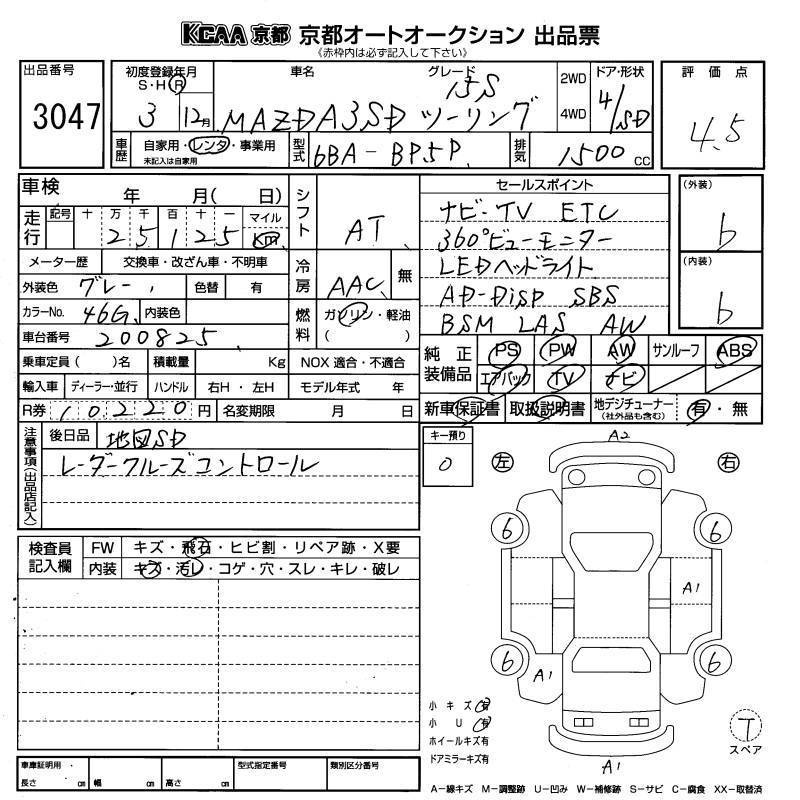 KCAA 京都 京都オートオークション 出品票
《赤枠内は必ず記入して下さい》
出品番号 3047
初度登録年月 S・H R 3 12月
車名 MAZDA3SD ツーリング
グレード 15S
2WD 4WD
ドア・形状 4/SD
評価点 4.5
車歴 自家用・レンタ・事業用 未記入は自家用
型式 6BA-BP5P
排気 1500 CC
車検 年 月( 日)
シフト AT
走行 記号 十 万 千 百 十 一 マイル
2 5 1 2 5 Km
メーター歴 交換車・改ざん車・不明車
冷房 AAC 無
外装色 グレー 色替 有
カラーNo. 46G 内装色
燃料 ガソリン・軽油 ( )
車台番号 200825
乗車定員( )名 積載量 Kg NOX 適合・不適合
輸入車 ディーラー・並行 ハンドル 右H・左H モデル年式 年
R券 10220 円 名変期限 月 日
セールスポイント
ナビ-TV ETC
360°ビューモニター
LEDヘッドライト
AD-DISP SBS
BSM LAS AW
(外装) b
(内装) b
純正装備品 PS PW AW サンルーフ ABS
エアバック TV ナビ
新車保証書 取扱説明書 地デジチューナー (社外品も含む) 有・無
注意事項(出品店記入)
後日品 地図SD
レーダークルーズコントロール
キー預り 0
検査員記入欄
FW キズ・飛石・ヒビ割・リペア跡・X要
内装 キズ・汚レ・コゲ・穴・スレ・キレ・破レ
A2
左 右
6 6
A1
6 6
A1
A1
小キズ有
小U有
ホイールキズ有
ドアミラーキズ有
T
スペア
車庫証明用・長さ cm 幅 cm 高さ cm
型式指定番号 類別区分番号
A-線キズ M-調整跡 U-凹み W-補修跡 S-サビ C-腐食 XX-取替済